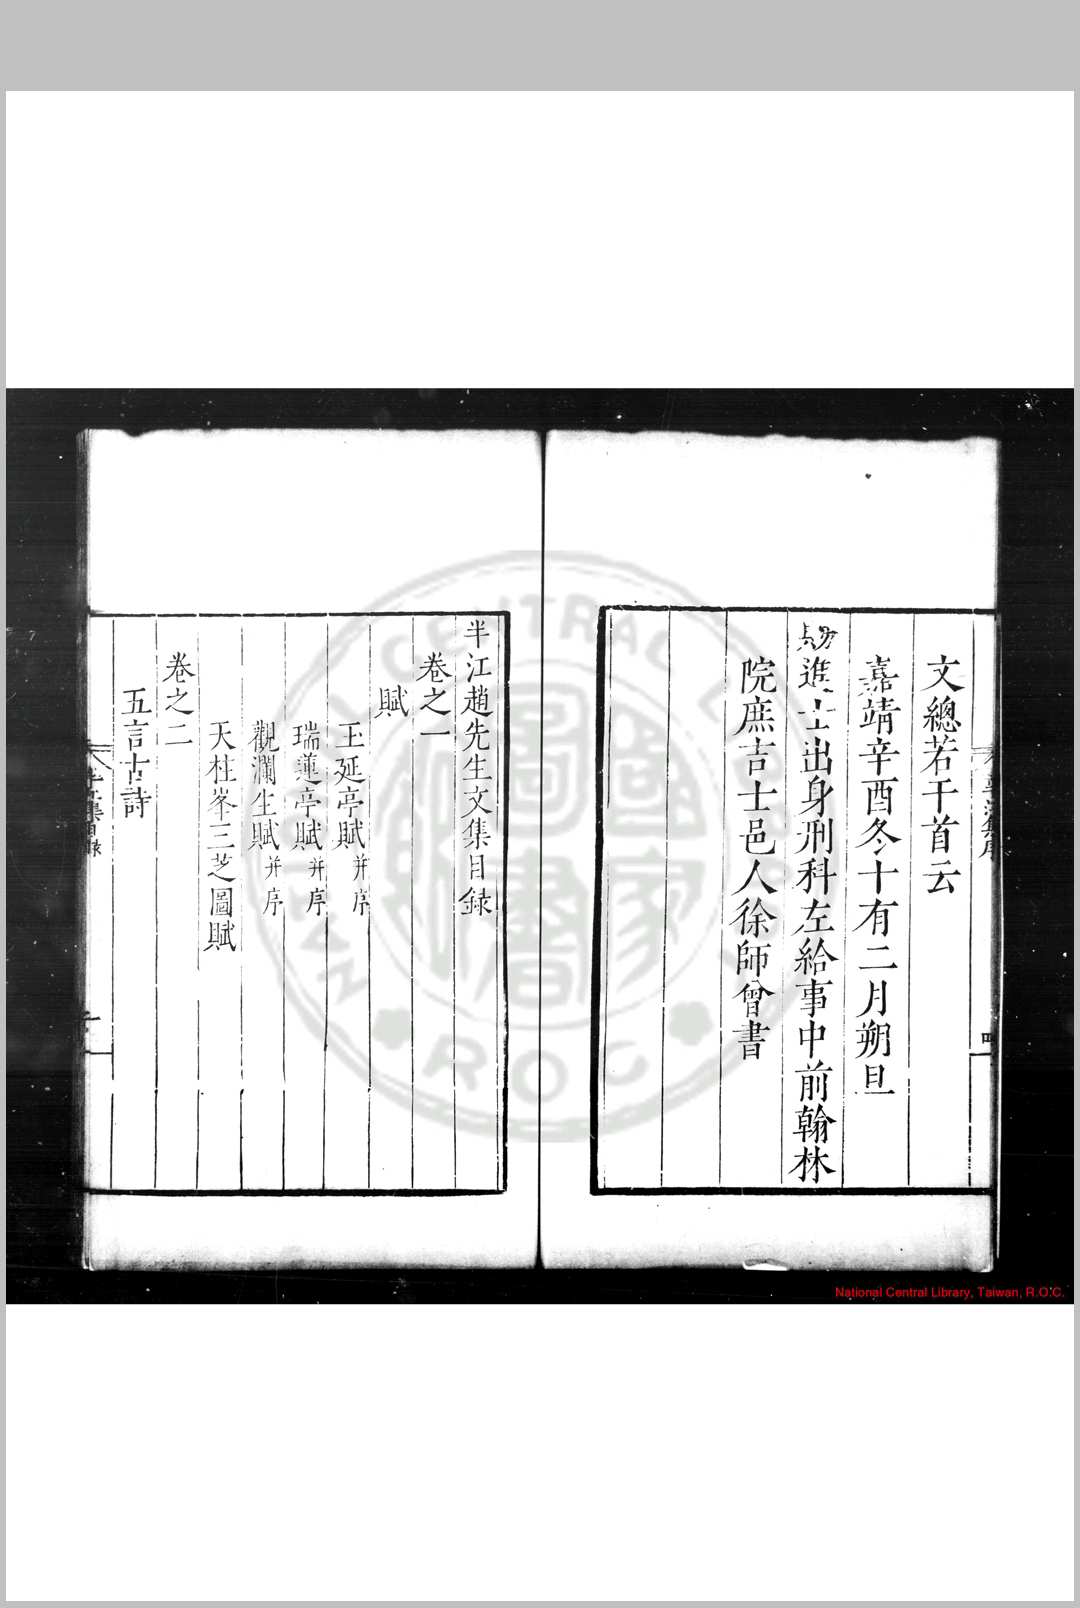 文總若干首云
嘉靖辛酉冬十有二月朔旦
賜進士出身刑科左給事中前翰林
院庶吉士邑人徐師曾書
半江趙先生文集目錄
卷之一
賦
玉延亭賦并序
瑞蓮亭賦并序
觀瀾生賦并序
天柱峯三芝圖賦
卷之二
五言古詩
National Central Library, Taiwan, R.O.C.